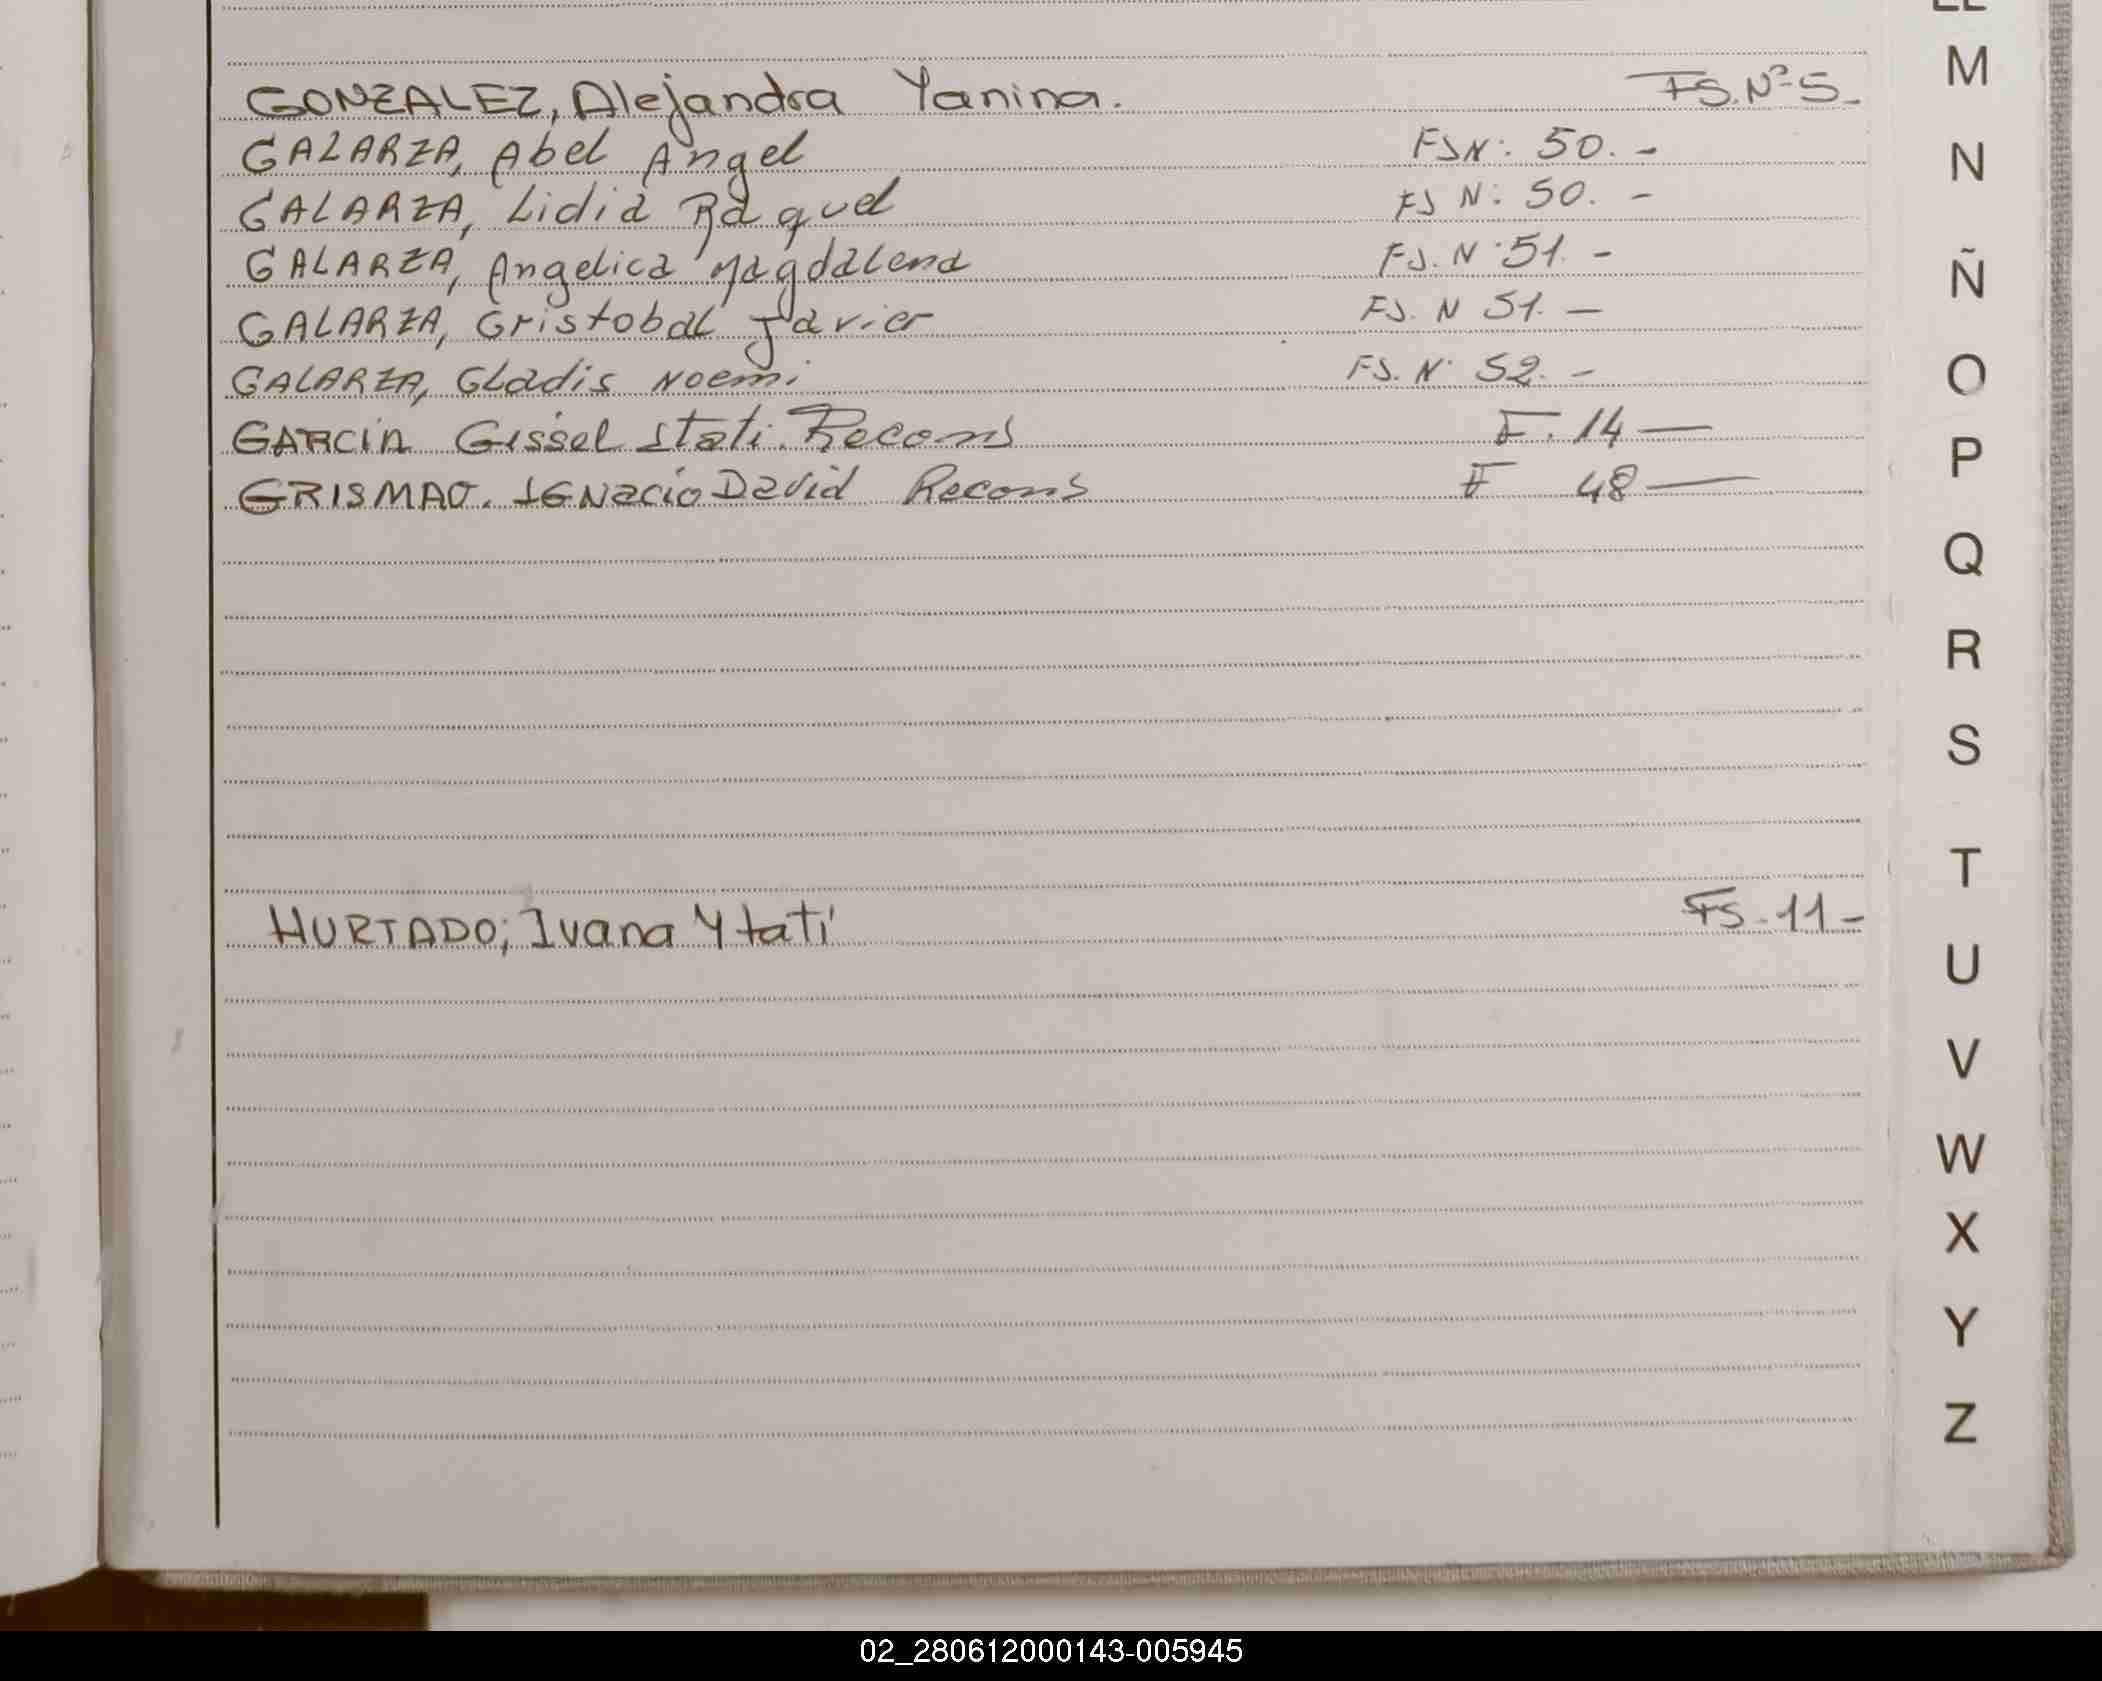 GONZALEZ, Alejandra Yanina. FS. Nº 5_
GALARZA, Abel Angel FSN: 50. -
GALARZA, Lidia Raquel FS N: 50. -
GALARZA, Angelica Magdalena FS. N 51. -
GALARZA, Cristobal Javier FS. N 51. -
GALARZA, Gladis Noemi FS. N. 52. -
GARCIA Gissel Itati. Recons F. 14 —
GRISMAO. IGNacio David Recons F 48 —
HURTADO; Ivana Ytati FS. 11 -
LL
M
N
Ñ
O
P
Q
R
S
T
U
V
W
X
Y
Z
02_280612000143-005945